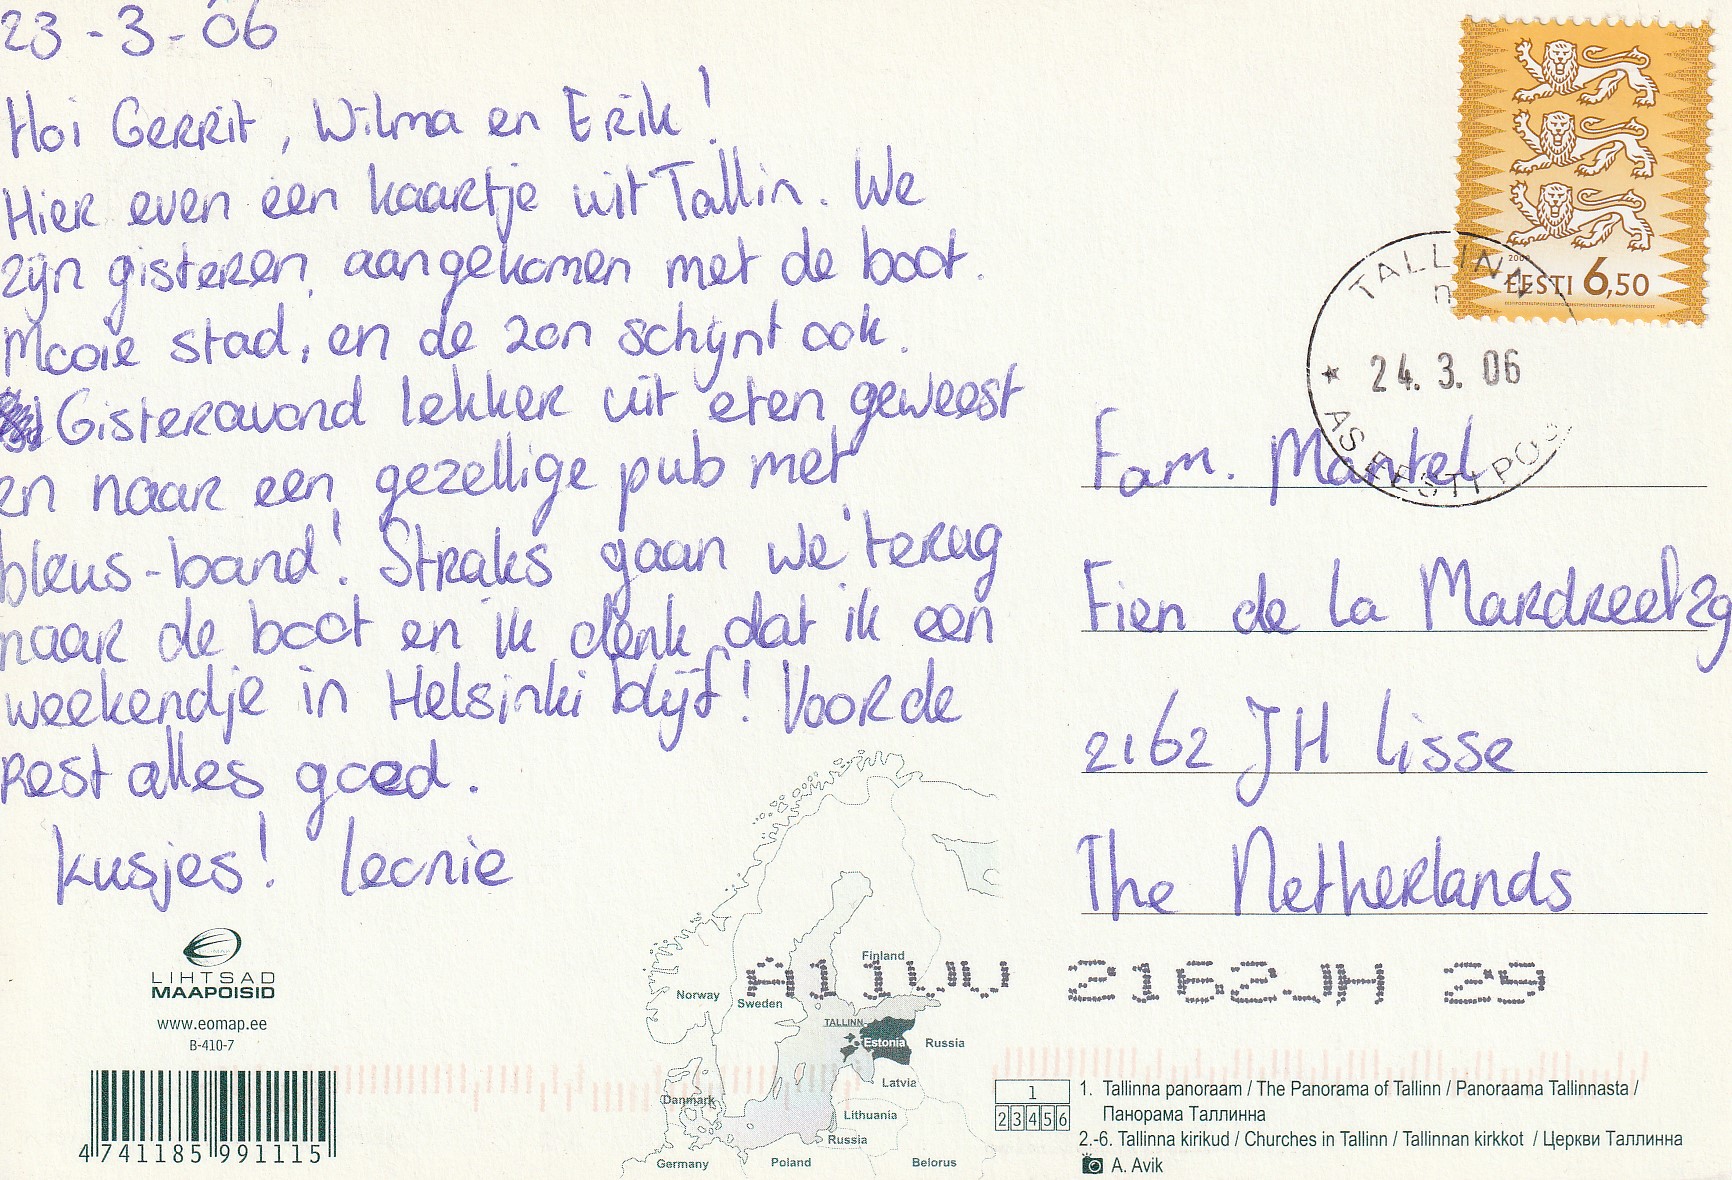 23-3-06
Hoi Gerrit, Wilma en Erik!
Hier even een kaartje uit Tallin. We
zijn gisteren aangekomen met de boot.
Mooie stad, en de zon schijnt ook.
Gisteravond lekker uit eten geweest
en naar een gezellige pub met
bleus-band! Straks gaan we terug
naar de boot en ik denk dat ik een
weekendje in Helsinki blijf! Voor de
rest alles goed.
kusjes! Leonie
EESTI 6,50
TALLINN
n
24.3.06
AS EESTI POST
Fam. Mantel
Fien de la Mardreef 29
2162 JH Lisse
The Netherlands
A11VV 2162JH 29
LIHTSAD
MAAPOISID
www.eomap.ee
B-410-7
4 741185 991115
Finland
Norway
Sweden
TALLINN
Estonia
Russia
Latvia
Denmark
Lithuania
Russia
Germany
Poland
Belorus
1
2 3 4 5 6
1. Tallinna panoraam / The Panorama of Tallinn / Panoraama Tallinnasta /
Панорама Таллинна
2.-6. Tallinna kirikud / Churches in Tallinn / Tallinnan kirkkot / Церкви Таллинна
A. Avik